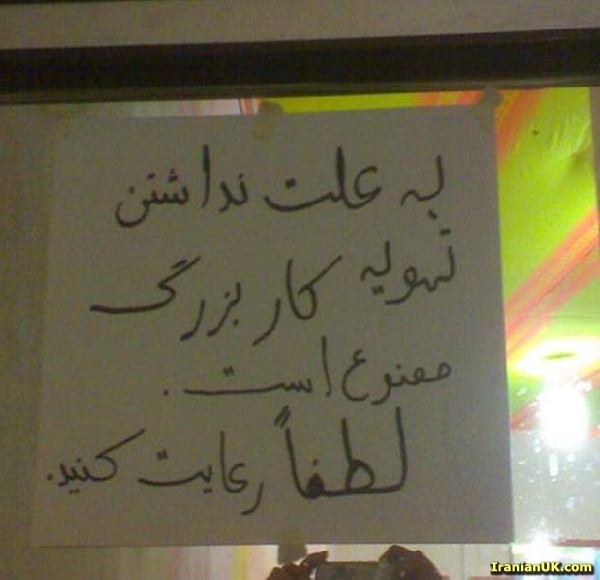 به علت نداشتن
تهویه کار بزرگ
ممنوع است.
لطفاً رعایت کنید.
IranianUK.com